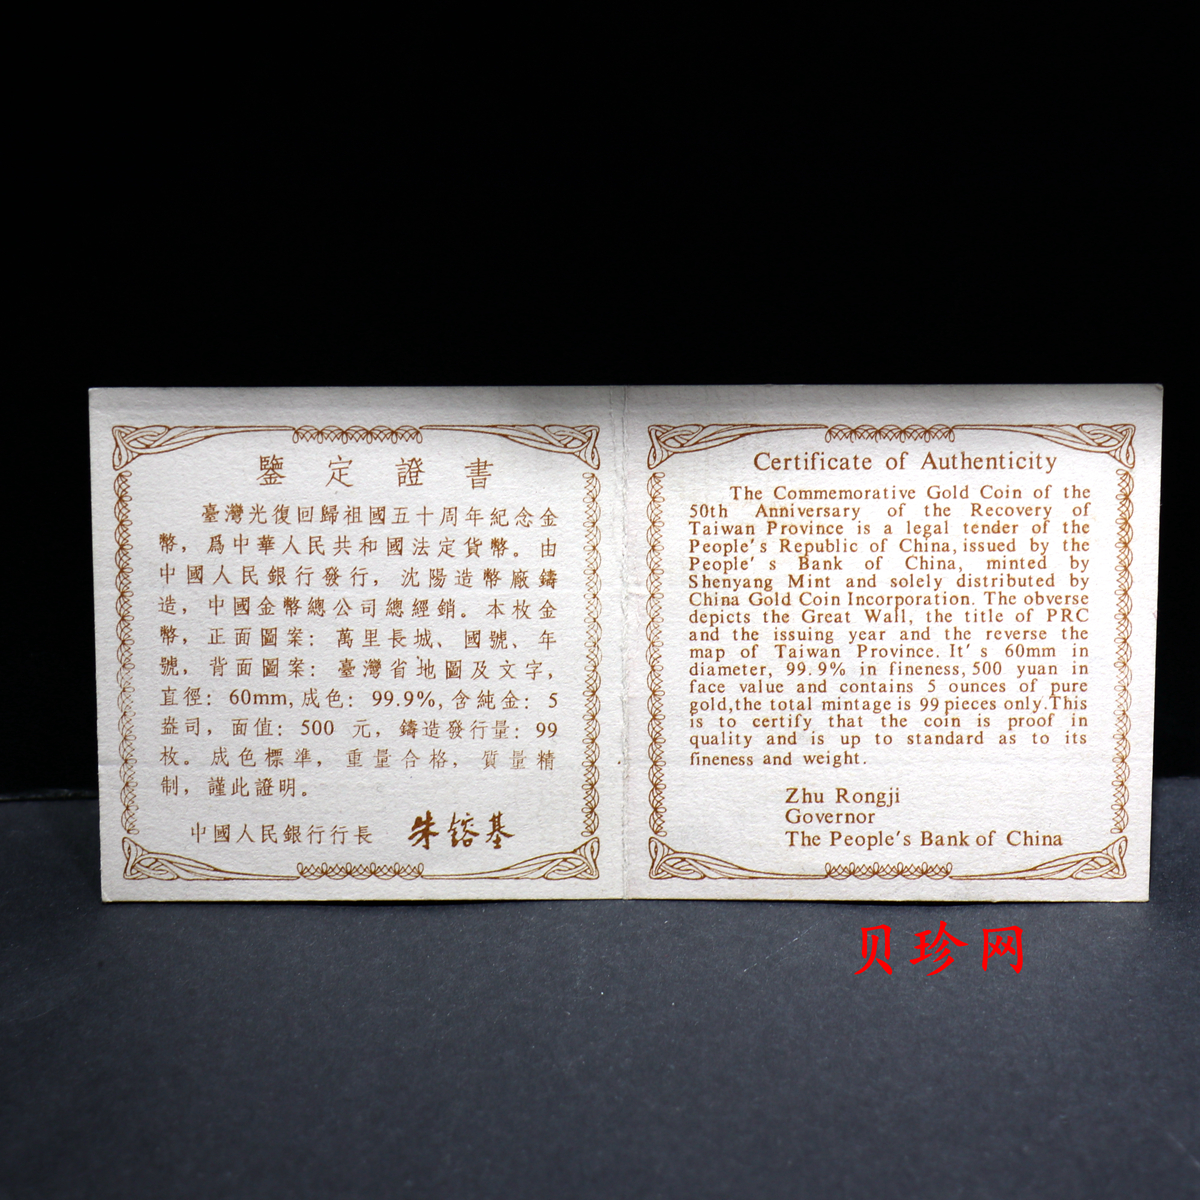 鑒定證書
臺灣光復回歸祖國五十周年紀念金
幣，爲中華人民共和國法定貨幣。由
中國人民銀行發行，沈陽造幣廠鑄
造，中國金幣總公司總經銷。本枚金
幣，正面圖案：萬里長城、國號、年
號，背面圖案：臺灣省地圖及文字，
直徑：60mm,成色：99.9%,含純金：5
盎司，面值：500 元，鑄造發行量：99
枚。成色標準，重量合格，質量精
制，謹此證明。
中國人民銀行行長 朱鎔基
Certificate of Authenticity
The Commemorative Gold Coin of the
50th Anniversary of the Recovery of
Taiwan Province is a legal tender of the
People's Republic of China, issued by the
People's Bank of China, minted by
Shenyang Mint and solely distributed by
China Gold Coin Incorporation. The obverse
depicts the Great Wall, the title of PRC
and the issuing year and the reverse the
map of Taiwan Province. It's 60mm in
diameter, 99.9% in fineness, 500 yuan in
face value and contains 5 ounces of pure
gold,the total mintage is 99 pieces only.This
is to certify that the coin is proof in
quality and is up to standard as to its
fineness and weight.
Zhu Rongji
Governor
The People's Bank of China
贝珍网